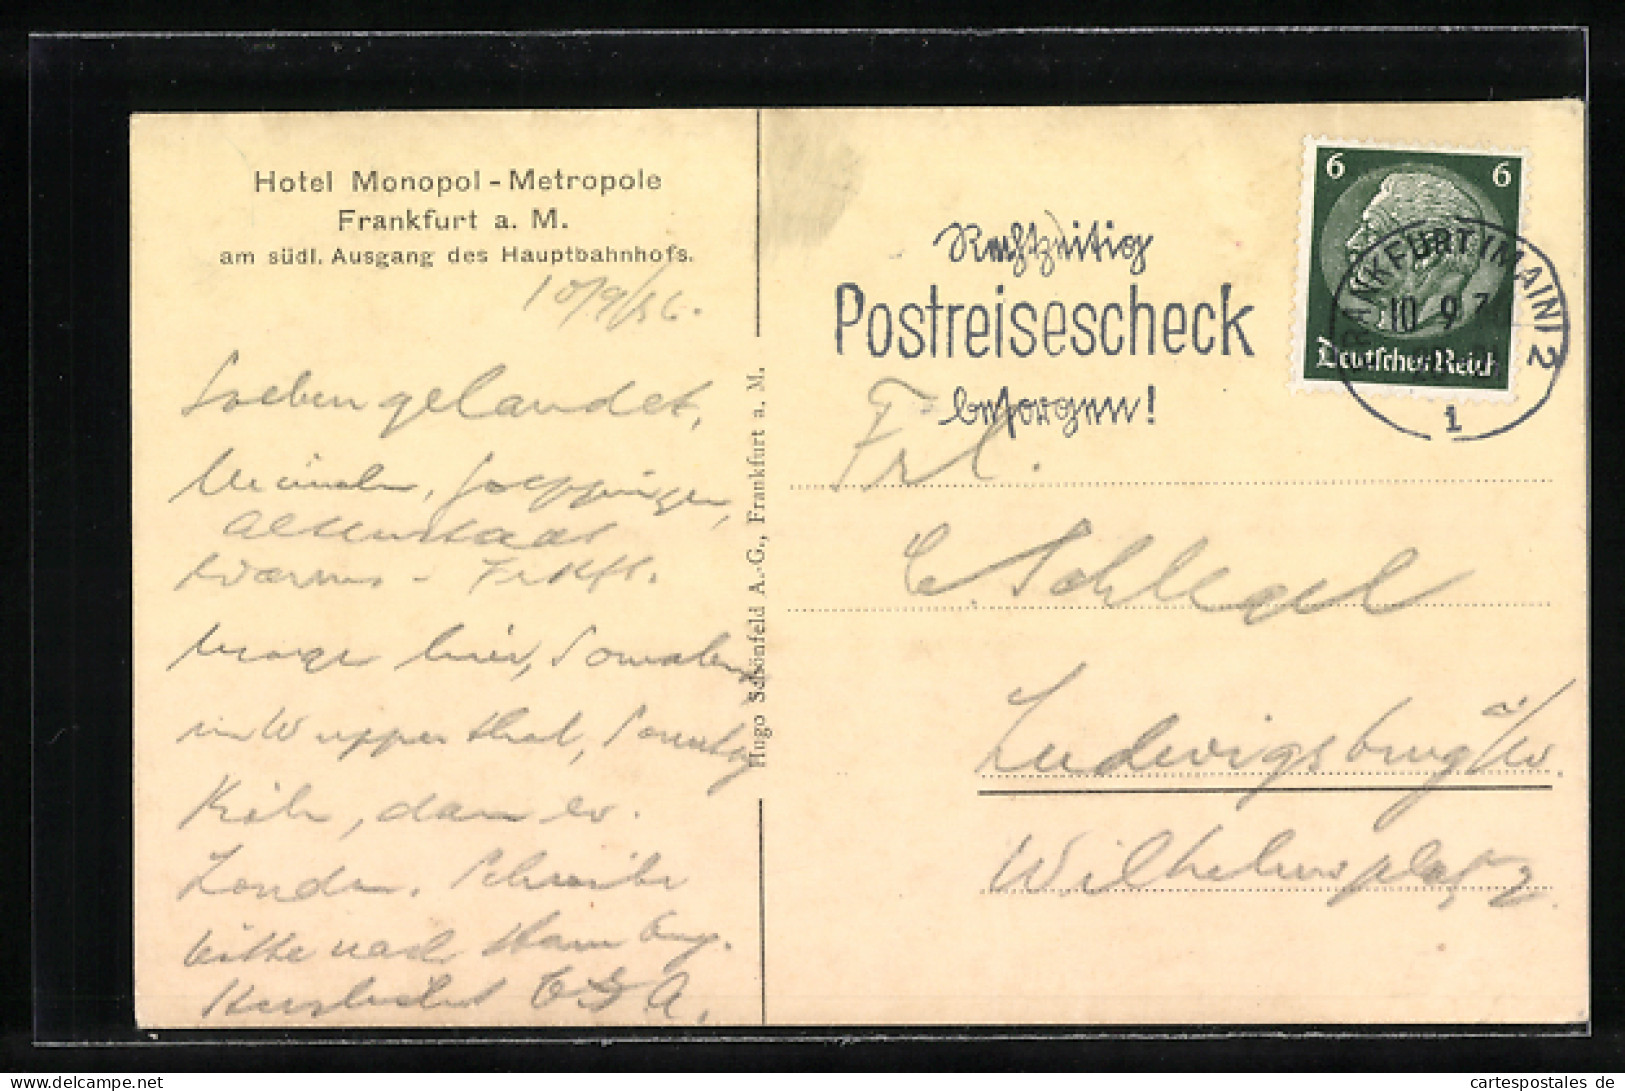 Hotel Monopol - Metropole
Frankfurt a. M.
am südl. Ausgang des Hauptbahnhofs.
10/9/36.
Soeben gelandet,
München, Goeppingen,
Worms - Frkft.
morgen hier, Sonnabend
in Wupperthal, Sonntag
Köln, dann ev.
London. Schreibe
bitte nach Hamburg.
Hugo Schönfeld A.-G., Frankfurt a. M.
Rechtzeitig
Postreisescheck
besorgen!
6 6
Deutsches Reich
FRANKFURT (MAIN) 2
10 9 3
1
Frl.
E. Schlegel
Ludwigsburg i/W.
Wilhelmsplatz 2
cartespostales de